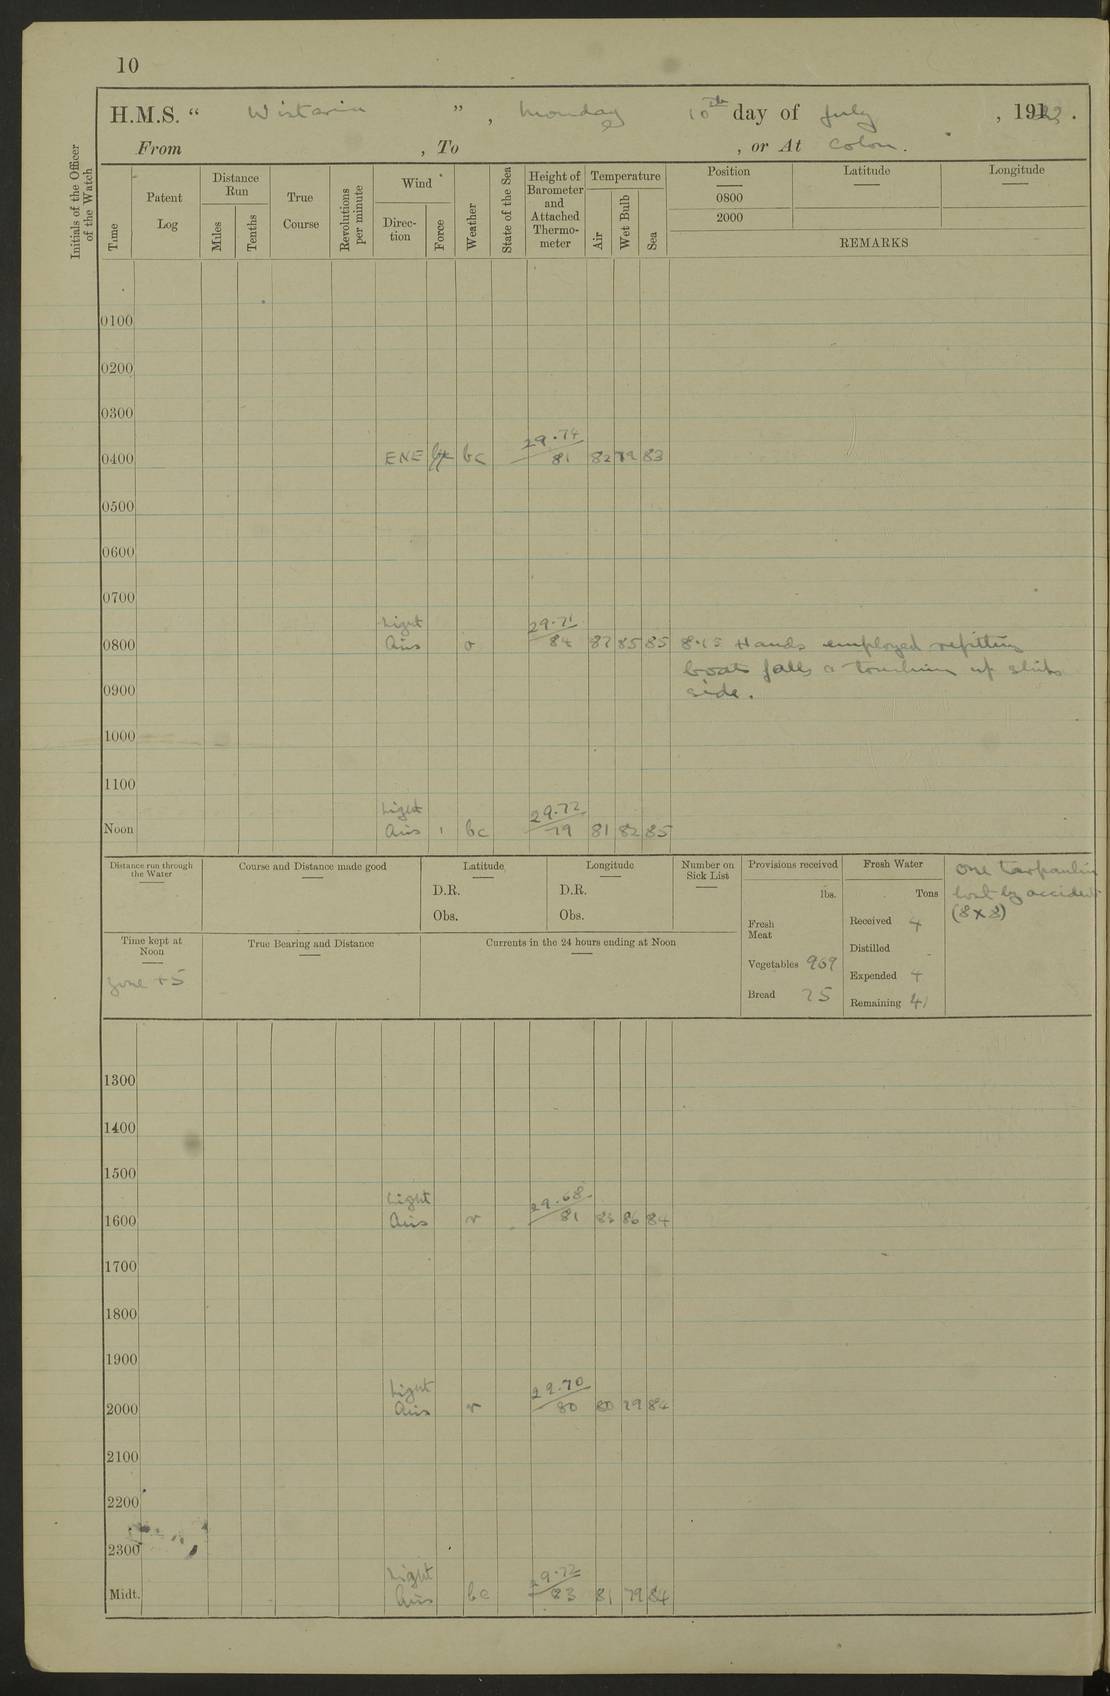 10
H.M.S. “ Wistaria ”, Monday 10th day of July, 1922.
From , To , or At Colon.
Initials of the Officer of the Watch
Time
Patent Log
Distance Run
Miles Tenths
True Course
Revolutions per minute
Wind
Direction Force
Weather
State of the Sea
Height of Barometer and Attached Thermometer
Temperature
Air Wet Bulb Sea
Position Latitude Longitude
0800
2000
REMARKS
0100
0200
0300
29.74
0400 ENE bc 81 82 79 83
0500
0600
0700
Light 29.71
0800 Airs 84 87 85 85 8.15 Hands employed refitting
boats falls & touching up ships
0900 side.
1000
1100
Light 29.72
Noon Airs 1 bc 79 81 82 85
Distance run through the Water
Course and Distance made good
Latitude
D.R.
Obs.
Longitude
D.R.
Obs.
Number on Sick List
Provisions received
lbs.
Fresh Meat
Vegetables 969
Bread 75
Fresh Water
Tons
Received 4
Distilled
Expended 4
Remaining 41
One tarpaulin
lost by accident
(8 x 8)
Time kept at Noon
zone +5
True Bearing and Distance
Currents in the 24 hours ending at Noon
1300
1400
1500
Light 29.68
1600 Airs 81 86 84
1700
1800
1900
Light 29.70
2000 Airs 80 80 79 84
2100
2200
2300
Light 29.72
Midt. Airs bc 83 81 79 84